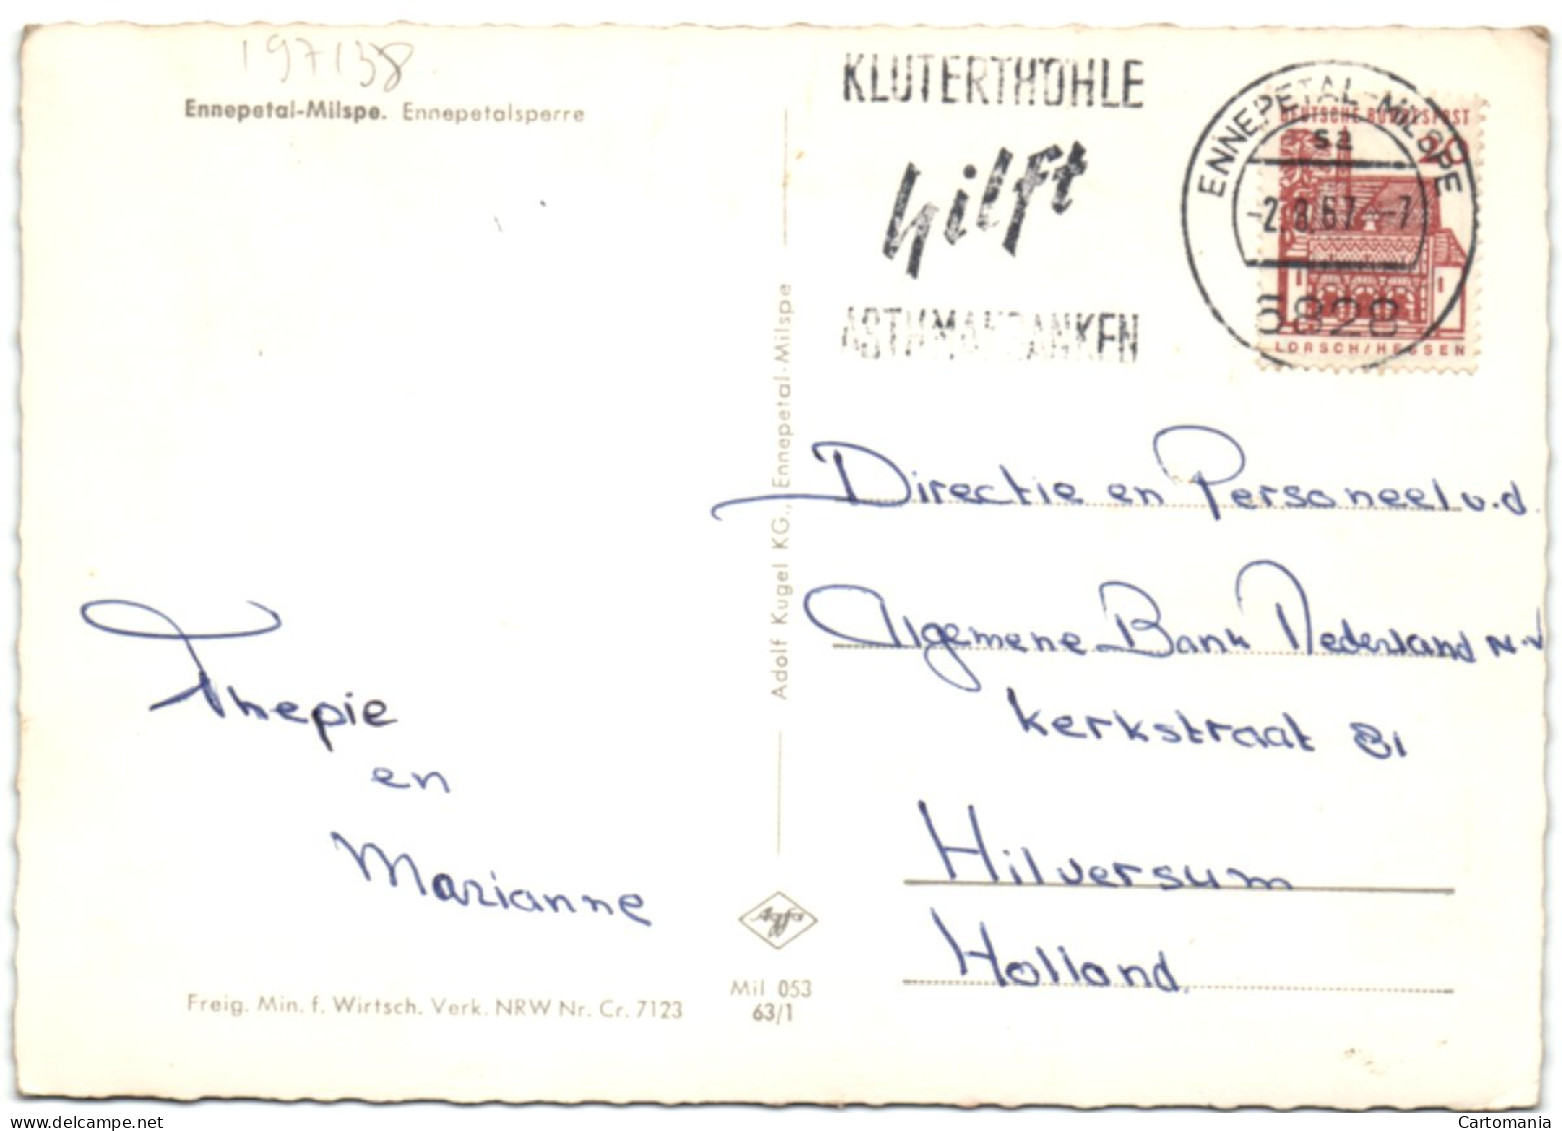 197138
Ennepetal-Milspe. Ennepetalsperre
KLUTERTHÖHLE
hilft
ASTHMAKRANKEN
ENNEPETAL-MILSPE
sa
-2.8.67.--7
5828
DEUTSCHE BUNDESPOST
20
LORSCH/HESSEN
Adolf Kugel KG., Ennepetal-Milspe
Directie en Personeel v.d.
Algemene Bank Nederland N.V
Kerkstraat 81
Hilversum
Holland.
Thepie
en
Marianne
Agfa
Mil 053
63/1
Freig. Min. f. Wirtsch. Verk. NRW Nr. Cr. 7123
Cartomania